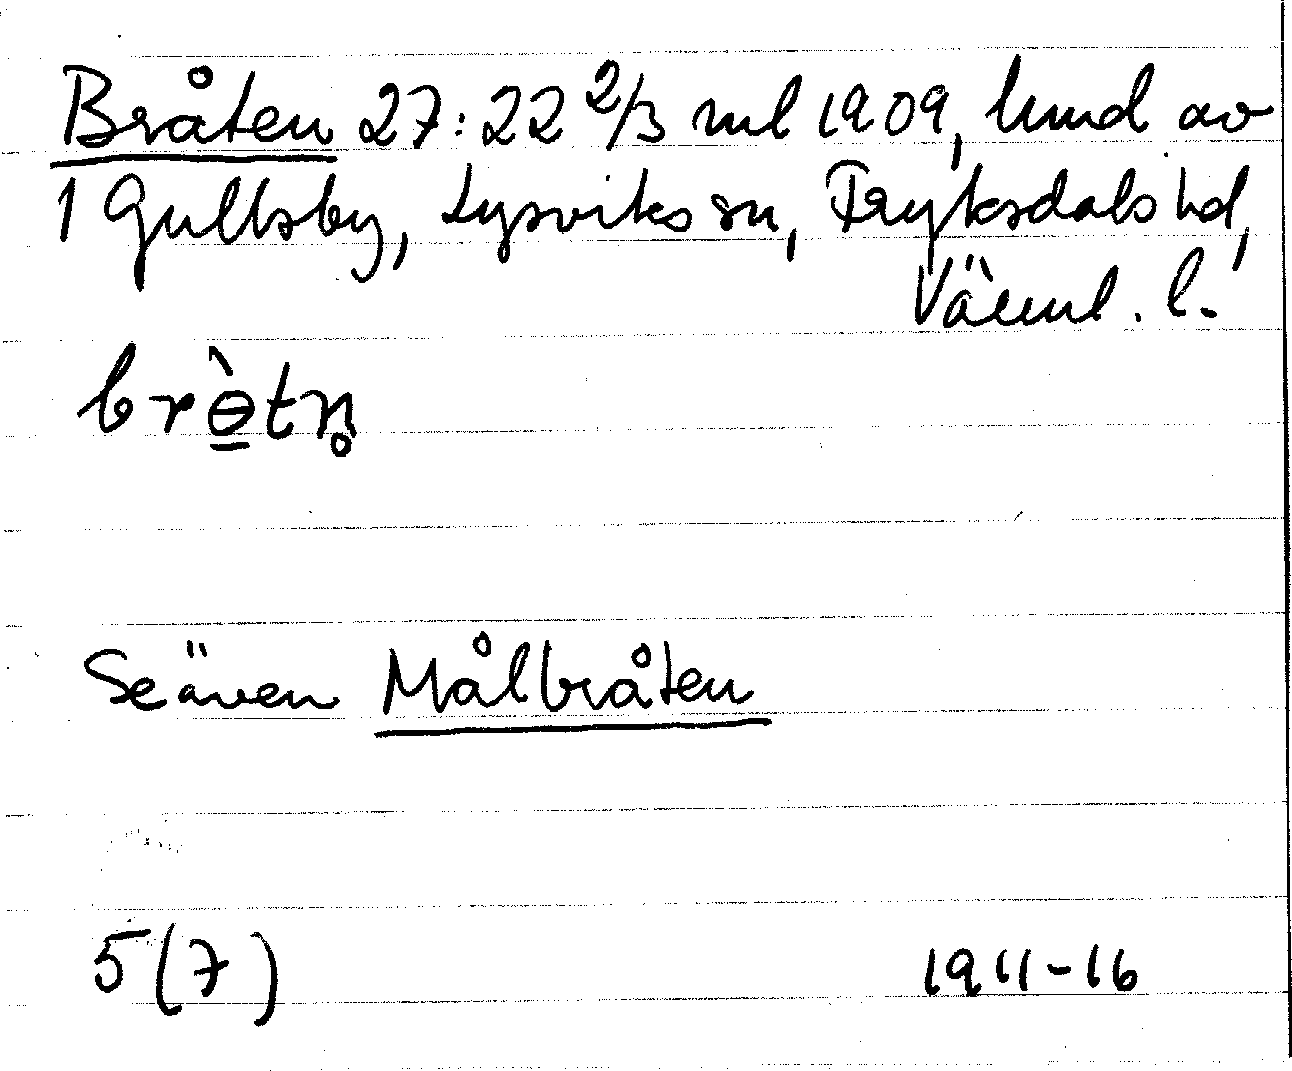 Bråten 27:22 2/3 ml 1909, hmd av
1 Gullsby, Lysviks sn, Fryksdals hd,
Värml. l.
brɵ̠̀tn̥
Se även Målbråten
5(7) 1911-16